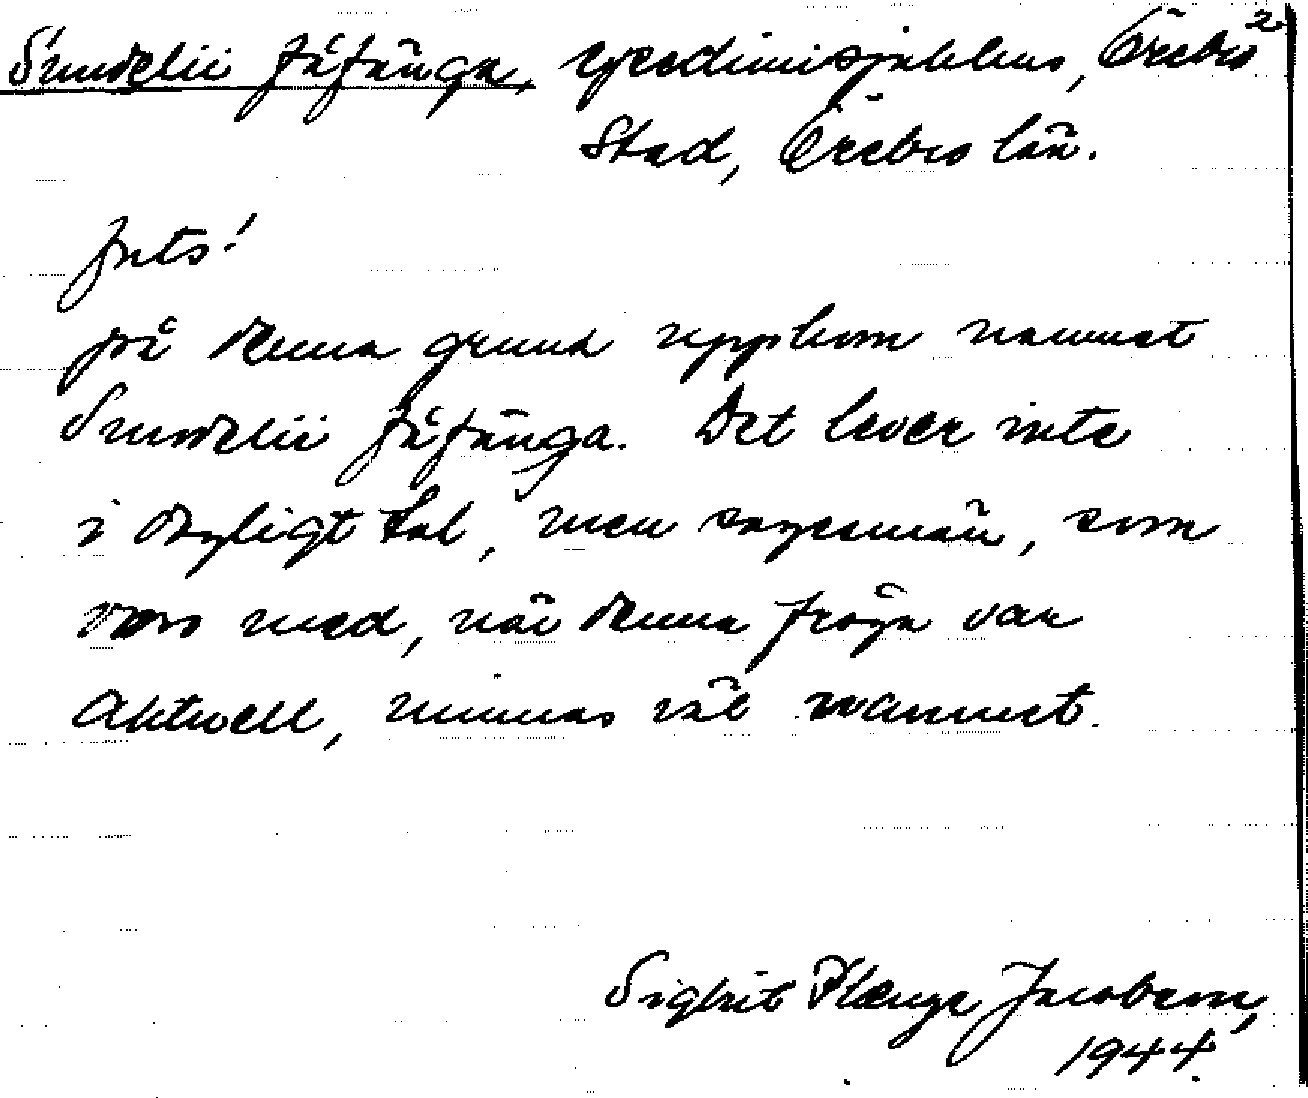 Sundelii fåfänga, Örebro 2
Stad, Örebro län.
forts!
på denna grund uppkom namnet
Sundelii fåfänga. Det lever inte
i dagligt tal, men sagesmän, som
voro med, när denna fråga var
aktuell, minnas väl namnet.
Sigfrid Jacobson,
1944.